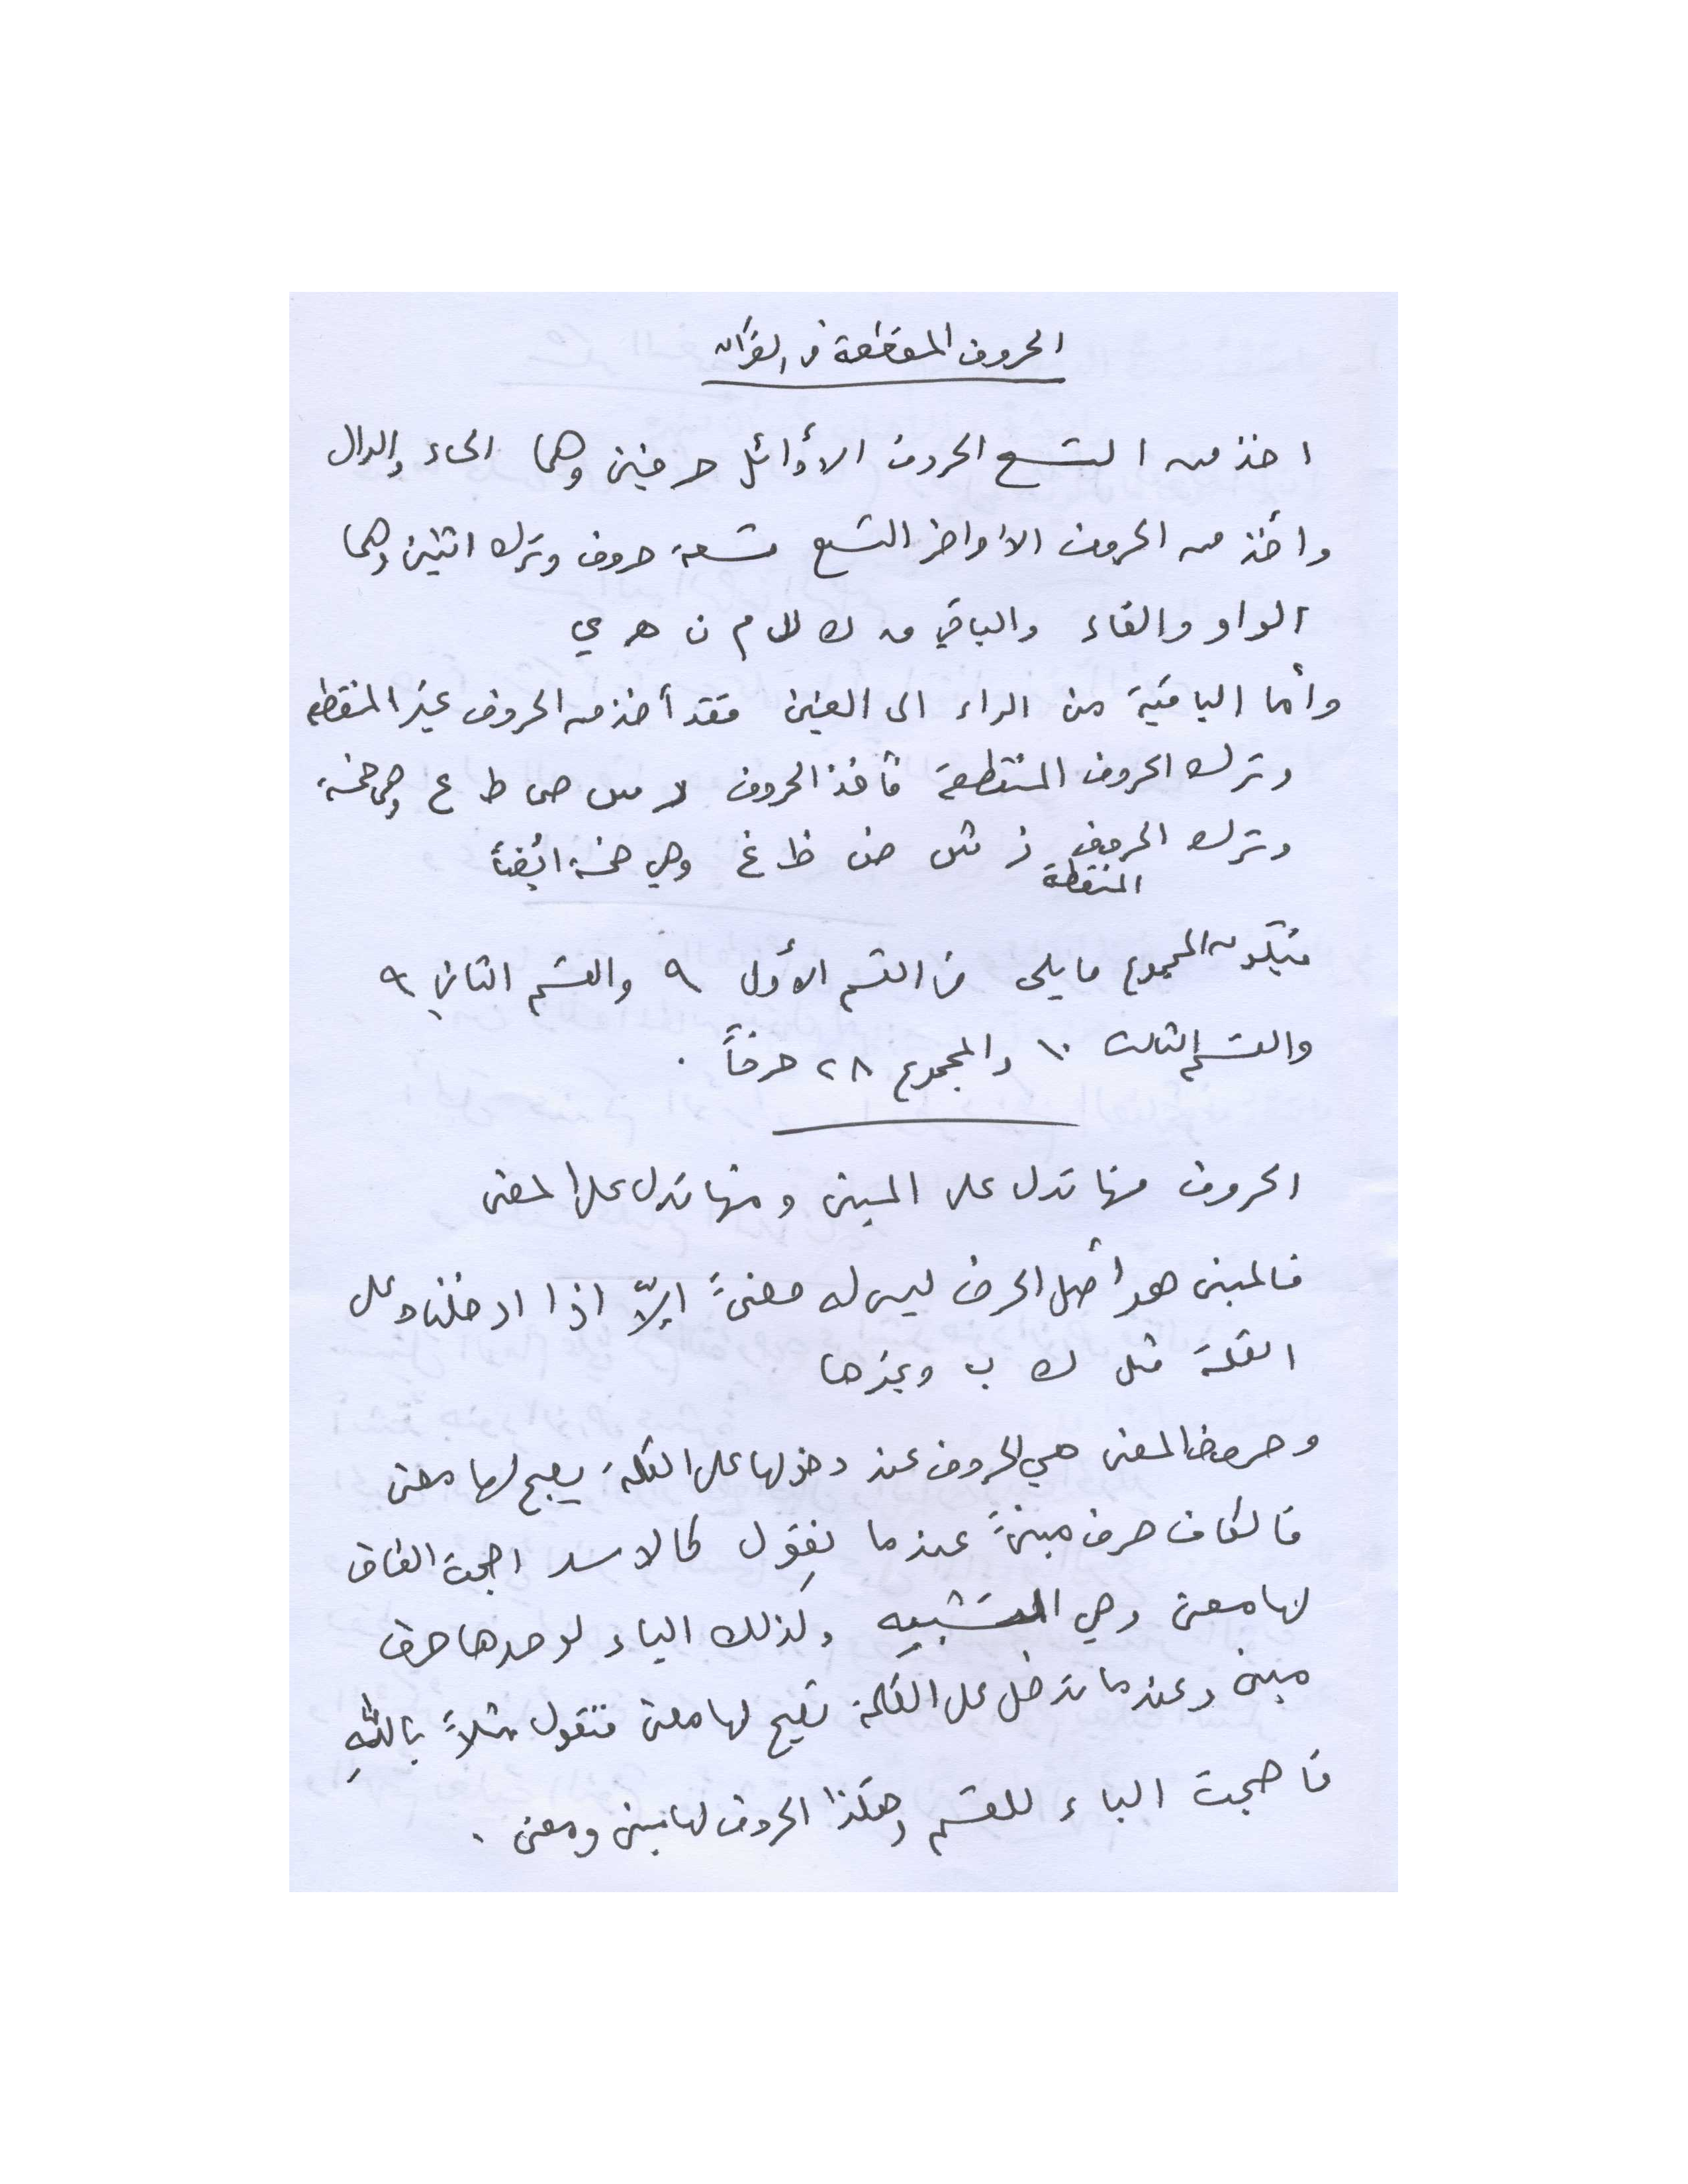 الحروف المقطعة في القرآن
اخذ من التسع الحروف الأوائل حرفين وهما الحاء والدال
وأخذ من الحروف الاواخر التسع تسعة حروف وترك اثنين وهما
الواو والفاء والباقي ق ك ل م ن هـ ي
وأما الباقية من الراء الى الغين فقد أخذ من الحروف غير المنقطه
وترك الحروف المنقطعة فأخذ الحروف ر س ص ط ع وهي خمسة
وترك الحروف المنقطة ز ش ض ظ غ وهي خمسة ايضاً
فيكون المجموع مايلي من القسم الأول ٩ والقسم الثاني ٩
والقسم الثالث ١٠ والمجموع ٢٨ حرفاً .
الحروف منها تدل على المبنى ومنها تدل على المعنى
فالمبنى هو أصل الحرف ليس له معنىً إلاّ اذا ادخلناه على
الكلمة مثل ك ب وغيرها
وحروف المعنى هي الحروف عند دخولها على الكلمة يصبح لها معنى
فالكاف حرف مبنىً عندما نقول كالاسد اصبحت الكاف
لها معنى وهي التشبيه وكذلك الباء لوحدها حرف
مبنى وعندما تدخل على الكلمة تصبح لها معنى فتقول مثلاً باللهِ
فاصبحت الباء للقسم وهكذا الحروف لها مبنى ومعنى .